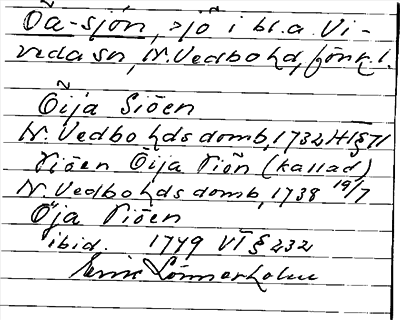 Öa-sjön, sjö i bl.a. Vi-
reda sn, N. Vedbo hd, Jönk. l.
Öija Siöen
N. Vedbo hds domb, 1732 14/1 § 71
Siöen Öija Siön (kallad)
N. Vedbo hds domb, 1738 19/7
Öja Siöen
ibid. 1779 VI § 232
Erik